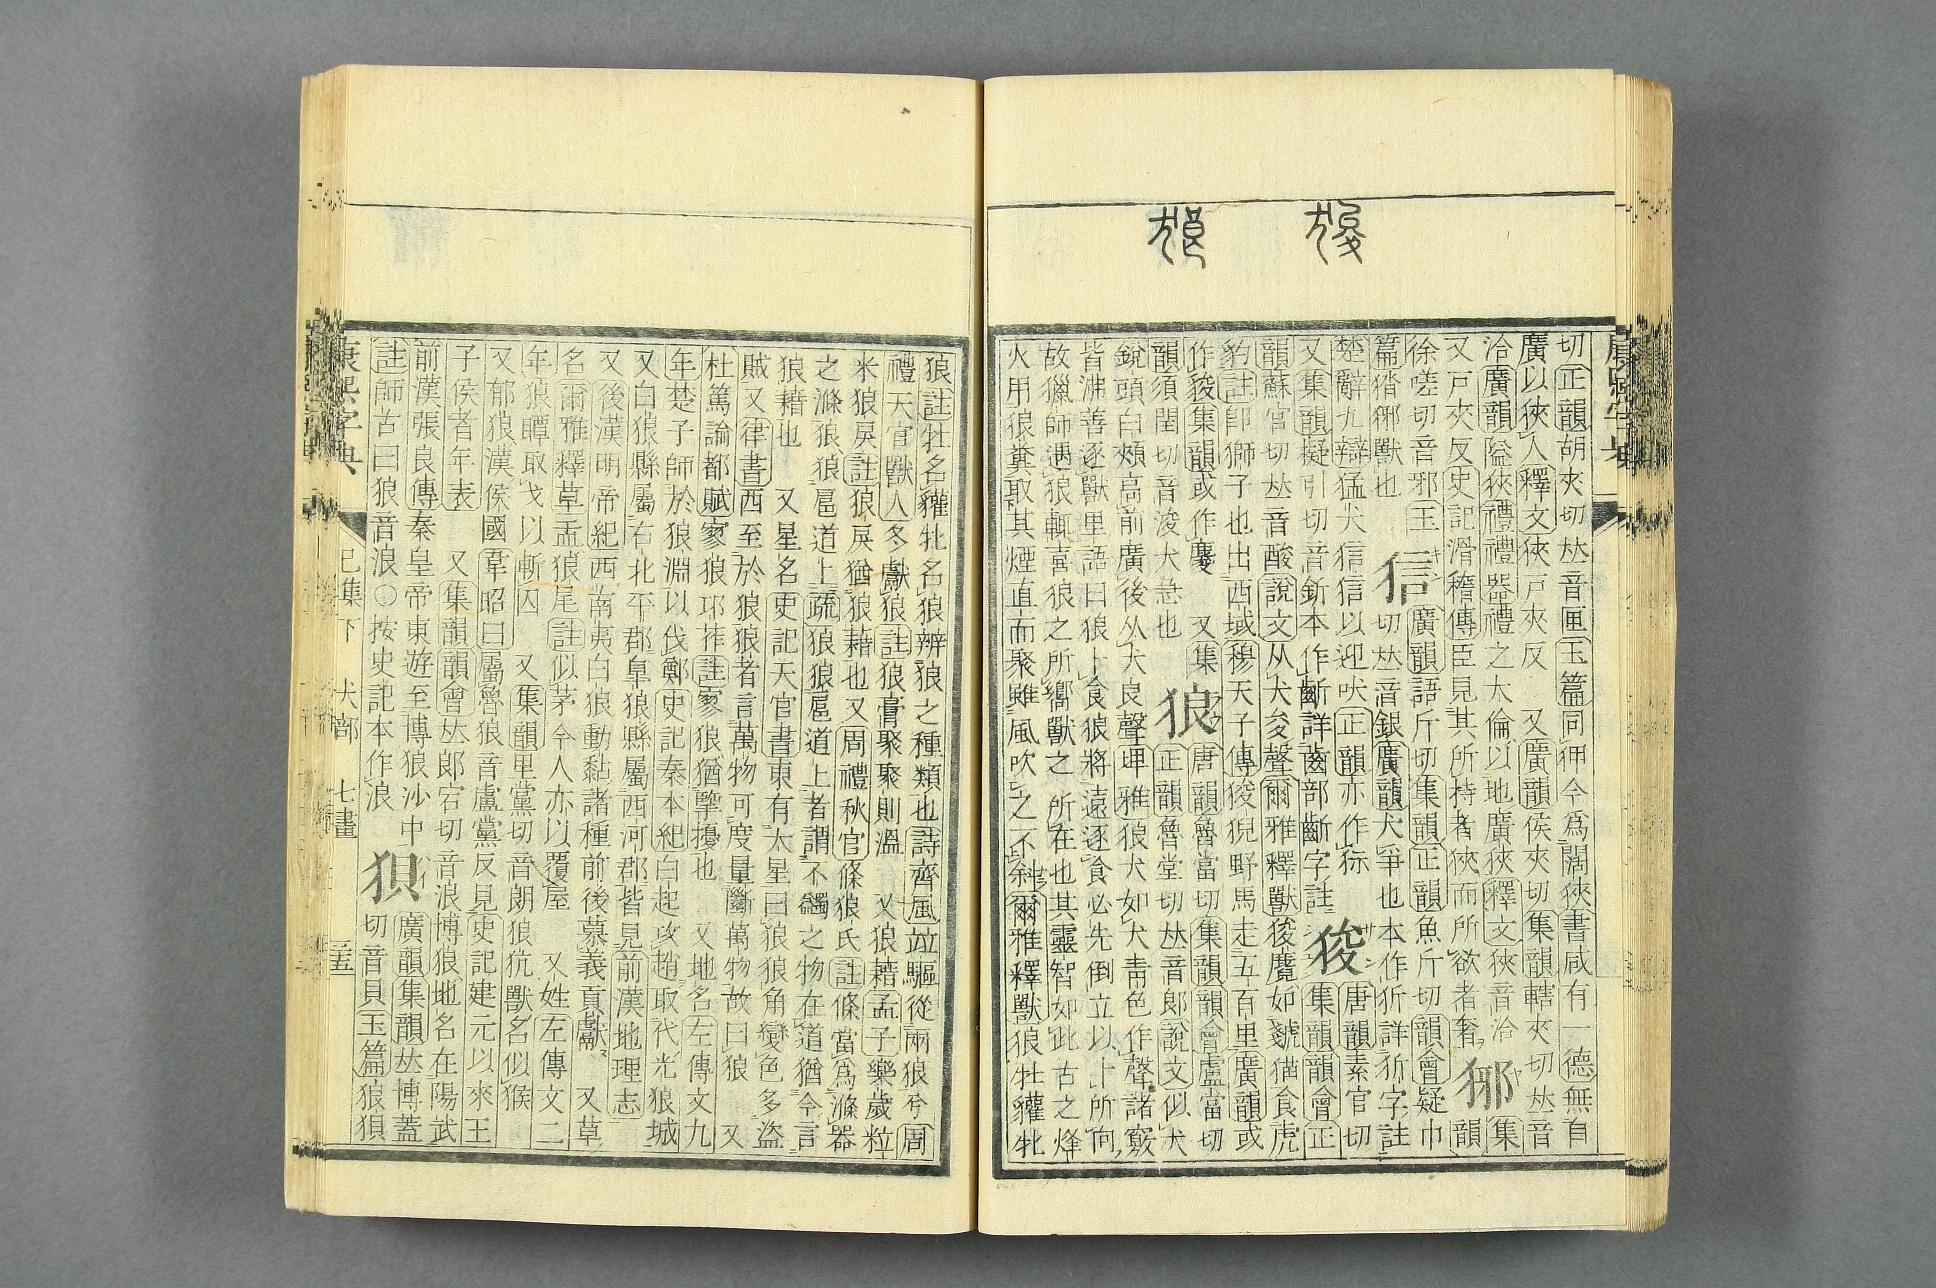 切正韻胡夾切𠀤音匣玉篇同狎今爲闊狹書咸有一德無自
廣以狹人釋文狹戸夾反 又廣韻侯夾切集韻轄夾切𠀤音
洽廣韻隘狹禮禮器禮之大倫以地廣狹釋文狹音洽
又戸夾反史記滑稽傳臣見其所持者狹而所欲者奢 㹿 集韻
徐嗟切音邪玉
篇猪㹿獸也 㹞 廣韻語斤切集韻正韻魚斤切韻會疑巾
切𠀤音銀廣韻犬爭也本作㹞詳㹞字註
楚辭九辯猛犬信信以迎吠正韻亦作狺
又集韻擬引切音釿本作齗詳齒部齗字註 狻 唐韻素官切
集韻韻會正
韻蘇官切𠀤音酸說文从犬夋聲爾雅釋獸狻麑如虦猫食虎
豹註卽獅子也出西域穆天子傳狻猊野馬走五百里廣韻或
作㕙集韻或作 又集
韻須閏切音浚犬急也 狼 唐韻魯當切集韻韻會盧當切
正韻魯堂切𠀤音郎說文似犬
銳頭白頰高前廣後从犬良聲埤雅狼犬如犬靑色作聲諸竅
皆沸善逐獸里語曰狼卜食狼將遠逐食必先倒立以卜所向
故獵師遇狼輒喜狼之所嚮獸之所在也其靈智如此古之烽
火用狼糞取其煙直而聚雖風吹之不斜爾雅釋獸狼牡貛牝
狼註牡名貛牝名狼辨狼之種類也詩齊風竝驅從兩狼兮周
禮天官獸人冬獻狼註狼膏聚聚則溫 又狼藉孟子樂歲粒
米狼戾註狼戾猶狼藉也又周禮秋官條狼氏註條當爲滌器
之滌狼狼扈道上疏狼狼扈道上者謂不蠲之物在道猶今言
狼藉也 又星名史記天官書東有大星曰狼狼角變色多盜
賊又律書西至於狼狼者言萬物可度量斷萬物故曰狼 又
杜篤論都賦寥狼邛莋註寥狼猶擊擾也 又地名左傳文九
年楚子師於狼淵以伐鄭史記秦本紀白起攻趙取代光狼城
又白狼縣屬右北平郡皐狼縣屬西河郡皆見前漢地理志
又後漢明帝紀西南夷白狼動黏諸種前後慕義貢獻 又草
名爾雅釋草孟狼尾註似茅今人亦以覆屋 又姓左傳文二
年狼瞫取戈以斬囚 又集韻里黨切音朗狼㹰獸名似猴
又郁狼漢侯國韋昭曰屬魯狼音盧黨反見史記建元以來王
子侯者年表 又集韻韻會𠀤郎宕切音浪博狼地名在陽武
前漢張良傳秦皇帝東遊至博狼沙中
註師古曰狼音浪○按史記本作浪 狽 廣韻集韻𠀤博蓋
切音貝玉篇狼狽
康熙字典 巳集下 犬部 七畫 三五